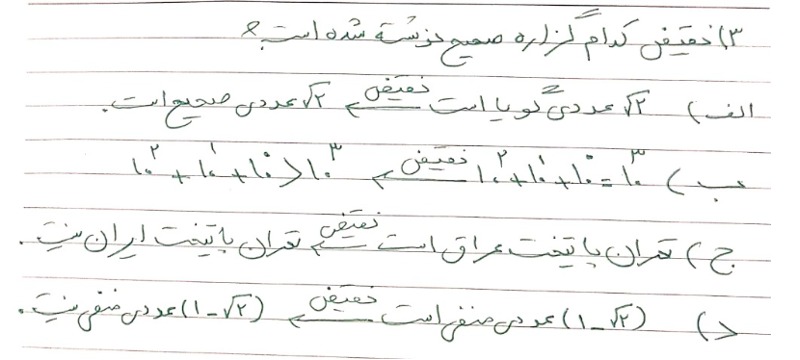 ۳) نقیض کدام گزاره صحیح نوشته شده است؟
الف) √۲ عددی گویا است ⟵نقیض √۲ عددی صحیح است.
ب) ۱۰^۲ + ۱۰^۱ + ۱۰^۰ = ۱۰^۳ ⟵نقیض ۱۰^۲ + ۱۰^۱ + ۱۰^۰ > ۱۰^۳
ج) تهران پایتخت عراق است ⟵نقیض تهران پایتخت ایران نیست.
د) (۱-√۲) عددی منفی است ⟵نقیض (۱-√۲) عددی منفی نیست.